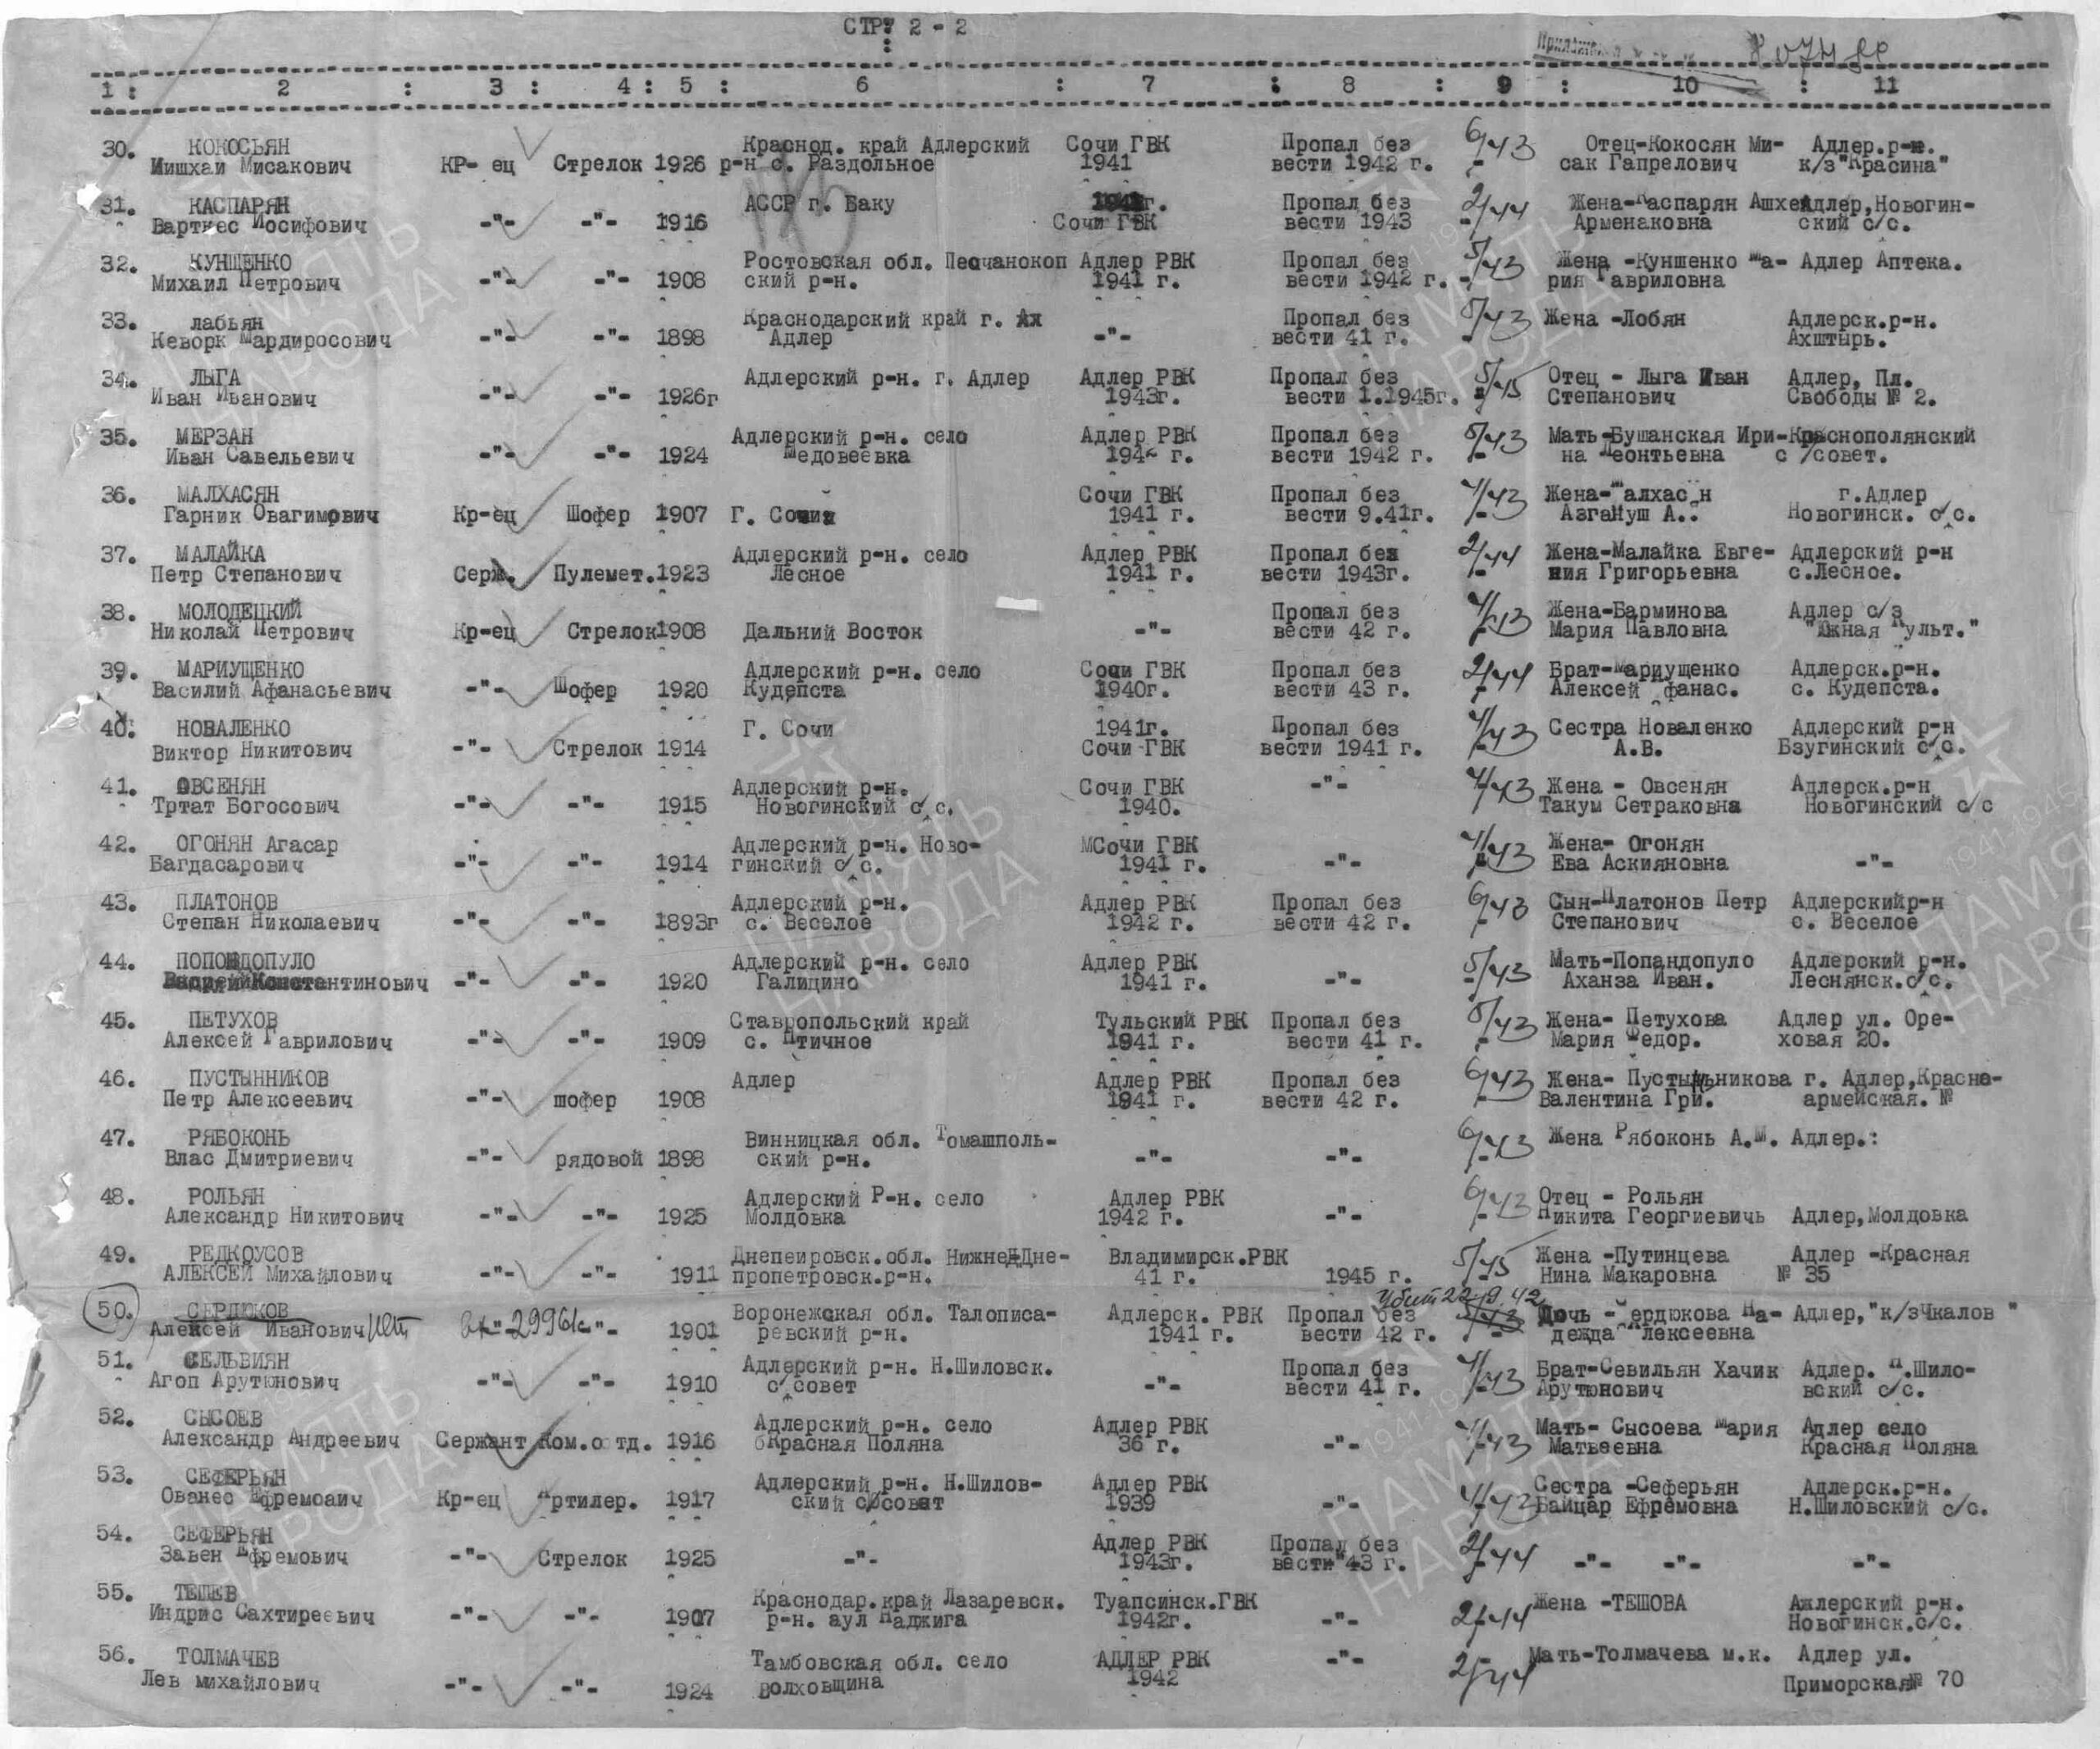 СТР. 2 - 2
1 : 2 : 3 : 4 : 5 : 6 : 7 : 8 : 9 : 10 : 11
30. КОКОСЬЯН Краснод. край Адлерский Сочи ГВК Пропал без 6/43 Отец-Кокосян Ми- Адлер.р-н.
Мишхаи Мисакович КР- ец Стрелок 1926 р-н с. Раздольное 1941 вести 1942 г. сак Гапрелович к/з"Красина"
31. КАСПАРЯН АССР г. Баку 1941г. Пропал без 2/44 Жена-Каспарян Ашхе Адлер,Новогин-
Варткес Иосифович -"- -"- 1916 Сочи ГВК вести 1943 Арменаковна ский с/с.
32. КУНЩЕНКО Ростовская обл. Песчанокоп Адлер РВК Пропал без 5/43 Жена -Куншенко Ма- Адлер Аптека.
Михаил Петрович -"- -"- 1908 ский р-н. 1941 г. вести 1942 г. рия Гавриловна
33. лабьян Краснодарский край г. Ах Пропал без 5/43 Жена -Лобян Адлерск.р-н.
Кеворк Мардиросович -"- -"- 1898 Адлер -"- вести 41 г. Ахштырь.
34. ЛЫГА Адлерский р-н. г. Адлер Адлер РВК Пропал без 5/45 Отец - Лыга Иван Адлер, Пл.
Иван Иванович -"- -"- 1926г 1943г. вести 1.1945г. Степанович Свободы № 2.
35. МЕРЗАН Адлерский р-н. село Адлер РВК Пропал без 5/43 Мать-Бушанская Ири-Краснополянский
Иван Савельевич -"- -"- 1924 Медовеевка 194 г. вести 1942 г. на Леонтьевна с /совет.
36. МАЛХАСЯН Сочи ГВК Пропал без 4/43 Жена-Малхасян г.Адлер
Гарник Овагимович Кр-ец Шофер 1907 Г. Сочи 1941 г. вести 9.41г. Азгануш А.. Новогинск. с/с.
37. МАЛАЙКА Адлерский р-н. село Адлер РВК Пропал без 2/44 Жена-Малайка Евге- Адлерский р-н
Петр Степанович Серж. Пулемет.1923 Лесное 1941 г. вести 1943г. ния Григорьевна с.Лесное.
38. МОЛОДЕЦКИЙ Пропал без 4/43 Жена-Барминова Адлер с/з
Николай Петрович Кр-ец Стрелок1908 Дальний Восток -"- вести 42 г. Мария Павловна "Южная Культ."
39. МАРИУЩЕНКО Адлерский р-н. село Сочи ГВК Пропал без 2/44 Брат-Мариущенко Адлерск.р-н.
Василий Афанасьевич -"- Шофер 1920 Кудепста 1940г. вести 43 г. Алексей Афанас. с. Кудепста.
40. НОВАЛЕНКО Г. Сочи 1941г. Пропал без 4/43 Сестра Новаленко Адлерский р-н
Виктор Никитович -"- Стрелок 1914 Сочи ГВК вести 1941 г. А.В. Бзугинский с/с.
41. ОВСЕНЯН Адлерский р-н. Сочи ГВК -"- 4/43 Жена - Овсенян Адлерск.р-н
Тртат Богосович -"- -"- 1915 Новогинский с/с. 1940. Такум Сетраковна Новогинский с/с
42. ОГОНЯН Агасар Адлерский р-н. Ново- МСочи ГВК 4/43 Жена- Огонян
Багдасарович -"- -"- 1914 гинский с/с. 1941 г. -"- Ева Аскияновна -"-
43. ПЛАТОНОВ Адлерский р-н. Адлер РВК Пропал без 6/43 Сын-Платонов Петр Адлерскийр-н
Степан Николаевич -"- -"- 1893г с. Веселое 1942 г. вести 42 г. Степанович с. Веселое
44. ПОПОНДОПУЛО Адлерский р-н. село Адлер РВК 5/43 Мать-Попандопуло Адлерский р-н.
Константинович -"- -"- 1920 Галицино 1941 г. -"- Аханза Иван. Леснянск.с/с.
45. ПЕТУХОВ Ставропольский край Тульский РВК Пропал без 5/43 Жена- Петухова Адлер ул. Оре-
Алексей Гаврилович -"- -"- 1909 с. Птичное 1941 г. вести 41 г. Мария Федор. ховая 20.
46. ПУСТЫННИКОВ Адлер Адлер РВК Пропал без 6/43 Жена- Пустынникова г. Адлер,Красно-
Петр Алексеевич -"- шофер 1908 1941 г. вести 42 г. Валентина Гри. армейская. №
47. РЯБОКОНЬ Винницкая обл. Томашполь- 6/43 Жена Рябоконь А.М. Адлер.:
Влас Дмитриевич -"- рядовой 1898 ский р-н. -"- -"-
48. РОЛЬЯН Адлерский Р-н. село Адлер РВК 6/43 Отец - Рольян
Александр Никитович -"- -"- 1925 Молдовка 1942 г. -"- Никита Георгиевичь Адлер,Молдовка
49. РЕДКОУСОВ Днепеировск.обл. НижнеДДне- Владимирск.РВК 5/45 Жена -Путинцева Адлер -Красная
АЛЕКСЕЙ Михайлович -"- -"- 1911 пропетровск.р-н. 41 г. 1945 г. Нина Макаровна № 35
Убит 22.9.42
50. СЕРДЮКОВ Воронежская обл. Талописа- Адлерск. РВК Пропал без 5/43 Дочь -Сердюкова На- Адлер,"к/зЧкалов "
Алексей Иванович -"- -"- 1901 ревский р-н. 1941 г. вести 42 г. дежда Алексеевна
51. СЕЛЬВИЯН Адлерский р-н. Н.Шиловск. Пропал без 4/43 Брат-Севильян Хачик Адлер. Н.Шило-
Агоп Арутюнович -"- -"- 1910 с/совет -"- вести 41 г. Арутюнович вский с/с.
52. СЫСОЕВ Адлерский р-н. село Адлер РВК 4/43 Мать- Сысоева Мария Адлер село
Александр Андреевич Сержант Ком.о тд. 1916 бКрасная Поляна 36 г. -"- Матвеевна Красная Поляна
53. СЕФЕРЬЯН Адлерский р-н. Н.Шилов- Адлер РВК 4/43 Сестра -Сеферьян Адлерск.р-н.
Ованес Ефремоаич Кр-ец Артилер. 1917 ский с/совет 1939 -"- Байцар Ефремовна Н.Шиловский с/с.
54. СЕФЕРЬЯН Адлер РВК Пропал без 2/44
Завен Ефремович -"- Стрелок 1925 -"- 1943г. вести 43 г. -"- -"- -"-
55. ТЕШЕВ Краснодар.край Лазаревск. Туапсинск.ГВК 2/44 Жена -ТЕШОВА Ажлерский р-н.
Индрис Сахтиреевич -"- -"- 1907 р-н. аул Наджига 1942г. -"- Новогинск.с/с.
56. ТОЛМАЧЕВ Тамбовская обл. село АДЛЕР РВК -"- 2/44 Мать-Толмачева м.к. Адлер ул.
Лев михайлович -"- -"- 1924 Волховщина 1942 Приморская№ 70